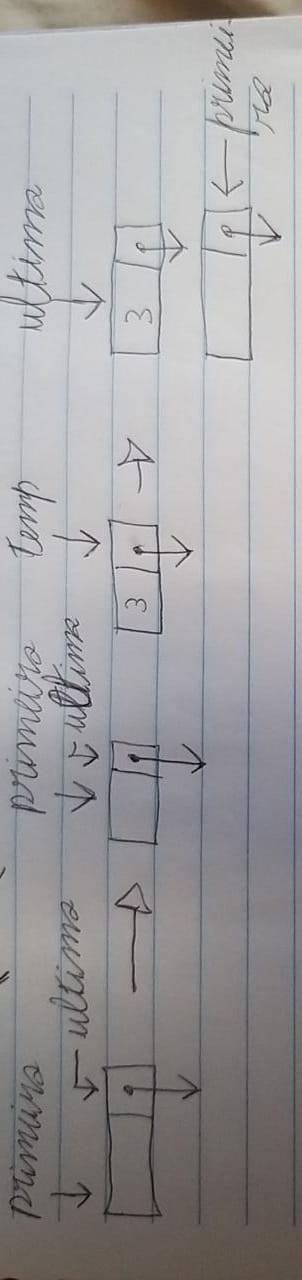 primeira
ultima
primeira
ultima
temp
3
ultima
3
primei-
ra